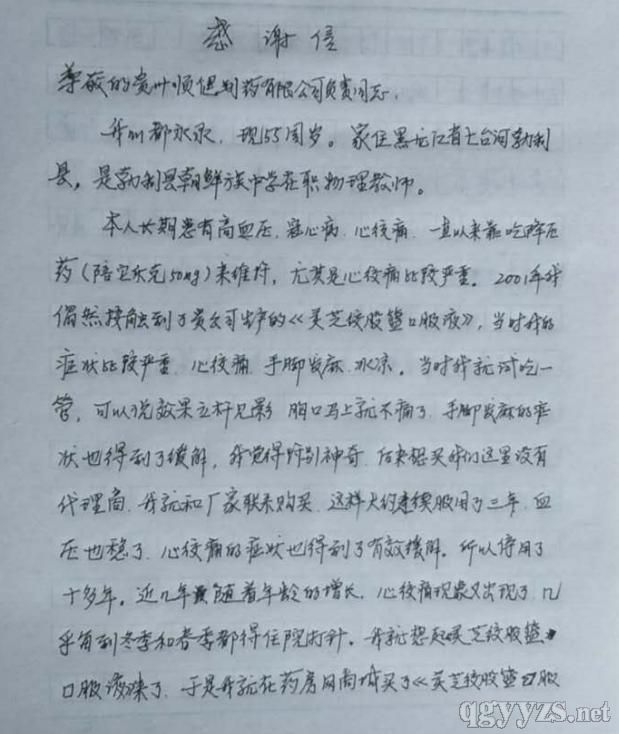 感谢信
尊敬的贵州顺健制药有限公司负责同志，
我叫都永永，现55周岁。家住黑龙江省七台河勃利
县，是勃利县朝鲜族中学在职物理教师。
本人长期患有高血压、冠心病、心绞痛，一直以来靠吃降压
药（倍它乐克50mg）来维持，尤其是心绞痛比较严重。2001年我
偶然接触到了贵公司生产的《灵芝绞股蓝口服液》，当时我的
症状比较严重，心绞痛、手脚发麻、冰凉。当时我就试吃一
管，可以说效果立杆见影 胸口马上就不痛了，手脚发麻的症
状也得到了缓解，我觉得特别神奇，后来想买我们这里没有
代理商，我就和厂家联系购买，这样大约连续服用了三年，血
压也稳了，心绞痛的症状也得到了有效缓解。所以停用了
十多年。近几年随着年龄的增长，心绞痛现象又出现了，几
乎每到冬季和春季都得住院打针。我就想起灵芝绞股蓝
口服液来了，于是我就在药房网商城买了《灵芝绞股蓝口服
qgyyzs.net